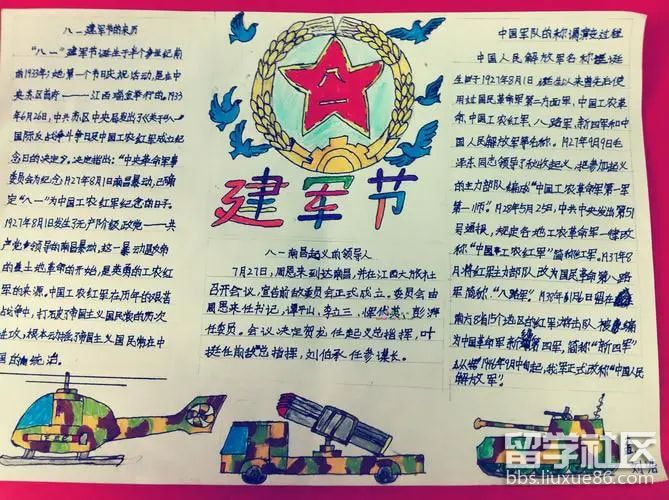 八一建军节的来历
"八一"建军节诞生于半个多世纪前
的1933年，她第一个节日庆祝活动，是在中
央苏区首府——江西瑞金举行的。1933
年6月26日，中共苏区中央局发出了《关于"八一"
国际反战争斗争日及中国工农红军成立纪
念日的决定》，决定指出："中央革命军事
委员会为纪念1927年8月1日南昌暴动，已确
定"八一"为中国工农红军纪念的日子。
1927年8月1日发生了无产阶级政党——共
产党领导的南昌暴动，这一暴动是
的土地革命的开始，是英勇的工农红
军的来源。中国工农红军在历年的艰苦
战争中，打破了帝国主义国民党的历次
进攻，根本动摇了帝国主义国民党在中
国的统治。
八一
建军节
八一南昌起义的领导人
7月27日，周恩来到达南昌，并在江西大旅社
召开会议，宣告前敌委员会正式成立。委员会由
周恩来任书记，谭平山、李立三、恽代英、彭湃
任委员。会议决定贺龙任起义总指挥，叶
挺任前敌总指挥，刘伯承任参谋长。
中国军队的称谓演变过程
中国人民解放军名称诞
生时于1927年8月1日诞生以来曾先后使
用过国民革命军第二方面军、中国工农革
命军、中国工农红军、八路军、新四军和中
国人民解放军等名称。1927年9月9日毛
泽东同志领导了秋收起义，把参加起义
的主力部队编成"中国工农革命军第一军
第一师"。1928年5月25日，中共中央发出第51
号通报，规定各地工农革命军一律改
称"中国工农红军"简称红军。1937年8
月将红军主力部队改为国民革命军第八路
军简称"八路军"。
南方8省15个选区的红军游击队被编
为中国革命军新第四军，简称"新四军"
从1946年9月中旬起，我军正式改称"中国人民
解放军"。
留学社区
bbs.liuxue86.com